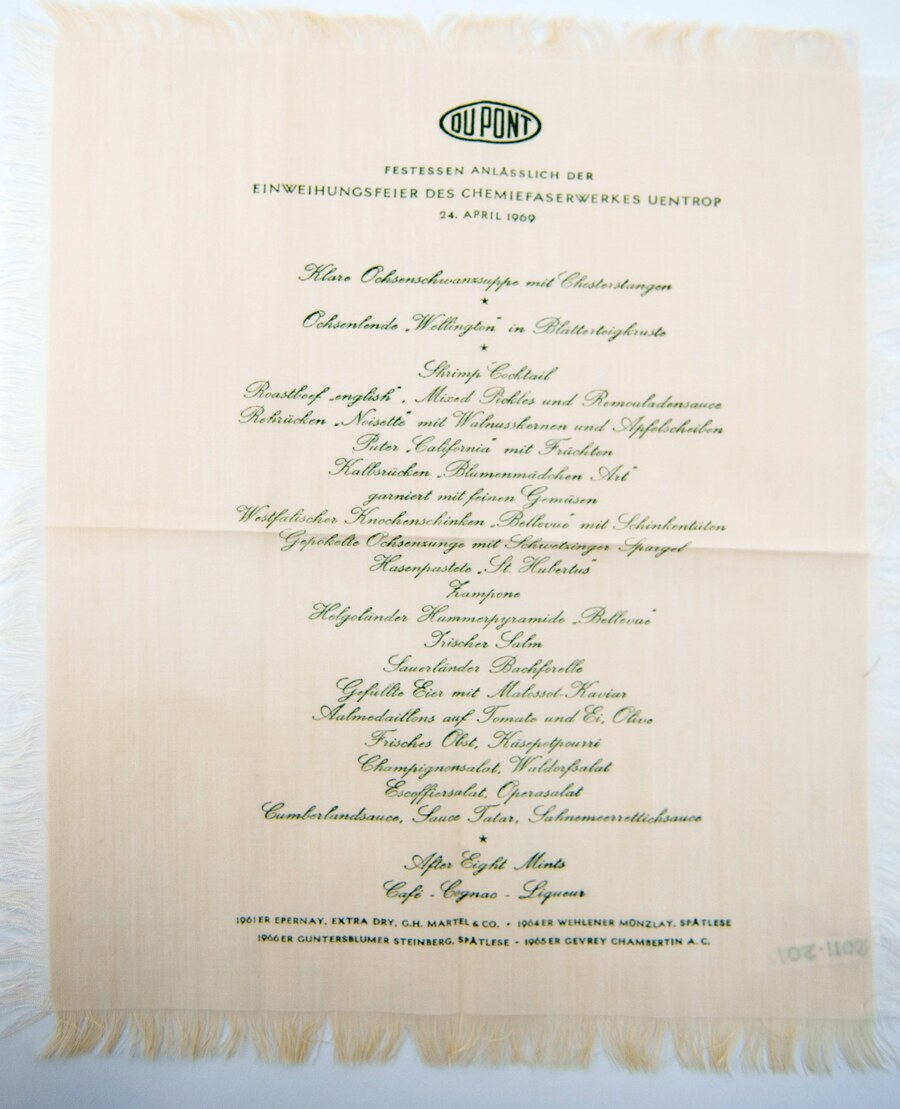 DU PONT
FESTESSEN ANLÄSSLICH DER
EINWEIHUNGSFEIER DES CHEMIEFASERWERKES UENTROP
24. APRIL 1969
Klare Ochsenschwanzsuppe mit Chesterstangen
Ochsenlende „Wellington" in Blätterteigkruste
Shrimp Cocktail
Roastbeef „englisch", Mixed Pickles und Remouladensauce
Rehrücken „Noisette" mit Walnusskernen und Apfelscheiben
Puter „California" mit Früchten
Kalbsrücken „Blumenmädchen Art"
garniert mit feinen Gemüsen
Westfälischer Knochenschinken „Bellevue" mit Schinkentüten
Gepökelte Ochsenzunge mit Schwetzinger Spargel
Hasenpastete „St. Hubertus"
Zampone
Helgoländer Hummerpyramide „Bellevue"
Irischer Salm
Sauerländer Bachforelle
Gefüllte Eier mit Malossol-Kaviar
Aalmedaillons auf Tomate und Ei, Olive
Frisches Obst, Käsepotpourri
Champignonsalat, Waldorfsalat
Escoffiersalat, Operasalat
Cumberlandsauce, Sauce Tatar, Sahnemeerrettichsauce
After Eight Mints
Café - Cognac - Liqueur
1961ER EPERNAY, EXTRA DRY, G.H. MARTEL & CO. • 1964ER WEHLENER MÜNZLAY, SPÄTLESE
1966ER GUNTERSBLUMER STEINBERG, SPÄTLESE • 1965ER GEVREY CHAMBERTIN A.C.
2011-201